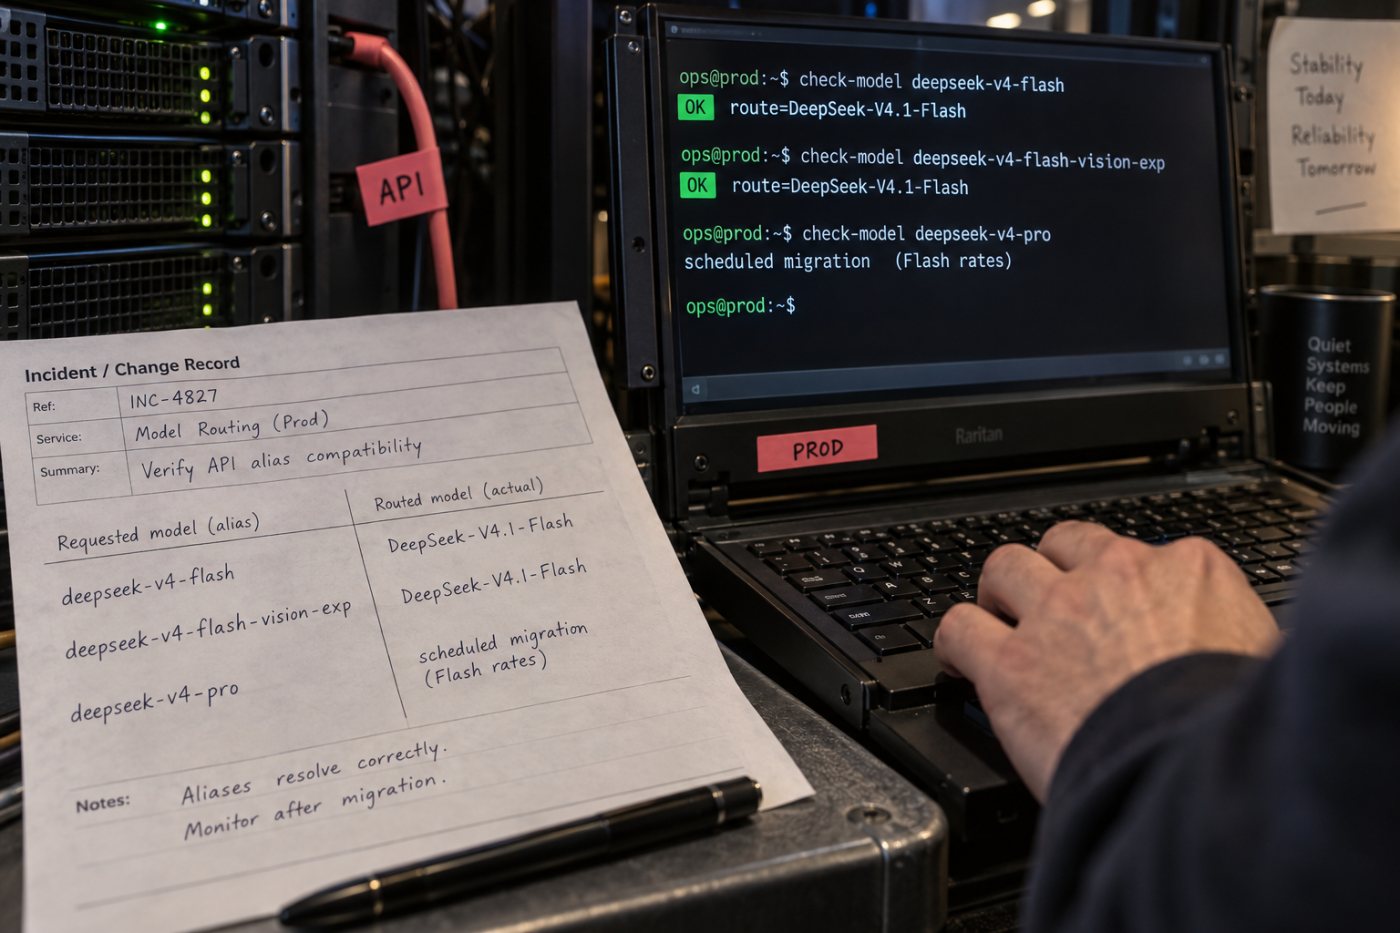 Incident / Change Record
Ref: INC-4827
Service: Model Routing (Prod)
Summary: Verify API alias compatibility
Requested model (alias) Routed model (actual)
deepseek-v4-flash DeepSeek-V4.1-Flash
deepseek-v4-flash-vision-exp DeepSeek-V4.1-Flash
deepseek-v4-pro scheduled migration
(Flash rates)
Notes: Aliases resolve correctly.
Monitor after migration.
API
ops@prod:~$ check-model deepseek-v4-flash
OK route=DeepSeek-V4.1-Flash
ops@prod:~$ check-model deepseek-v4-flash-vision-exp
OK route=DeepSeek-V4.1-Flash
ops@prod:~$ check-model deepseek-v4-pro
scheduled migration (Flash rates)
ops@prod:~$
PROD
Raritan
Stability
Today
Reliability
Tomorrow
Quiet
Systems
Keep
People
Moving